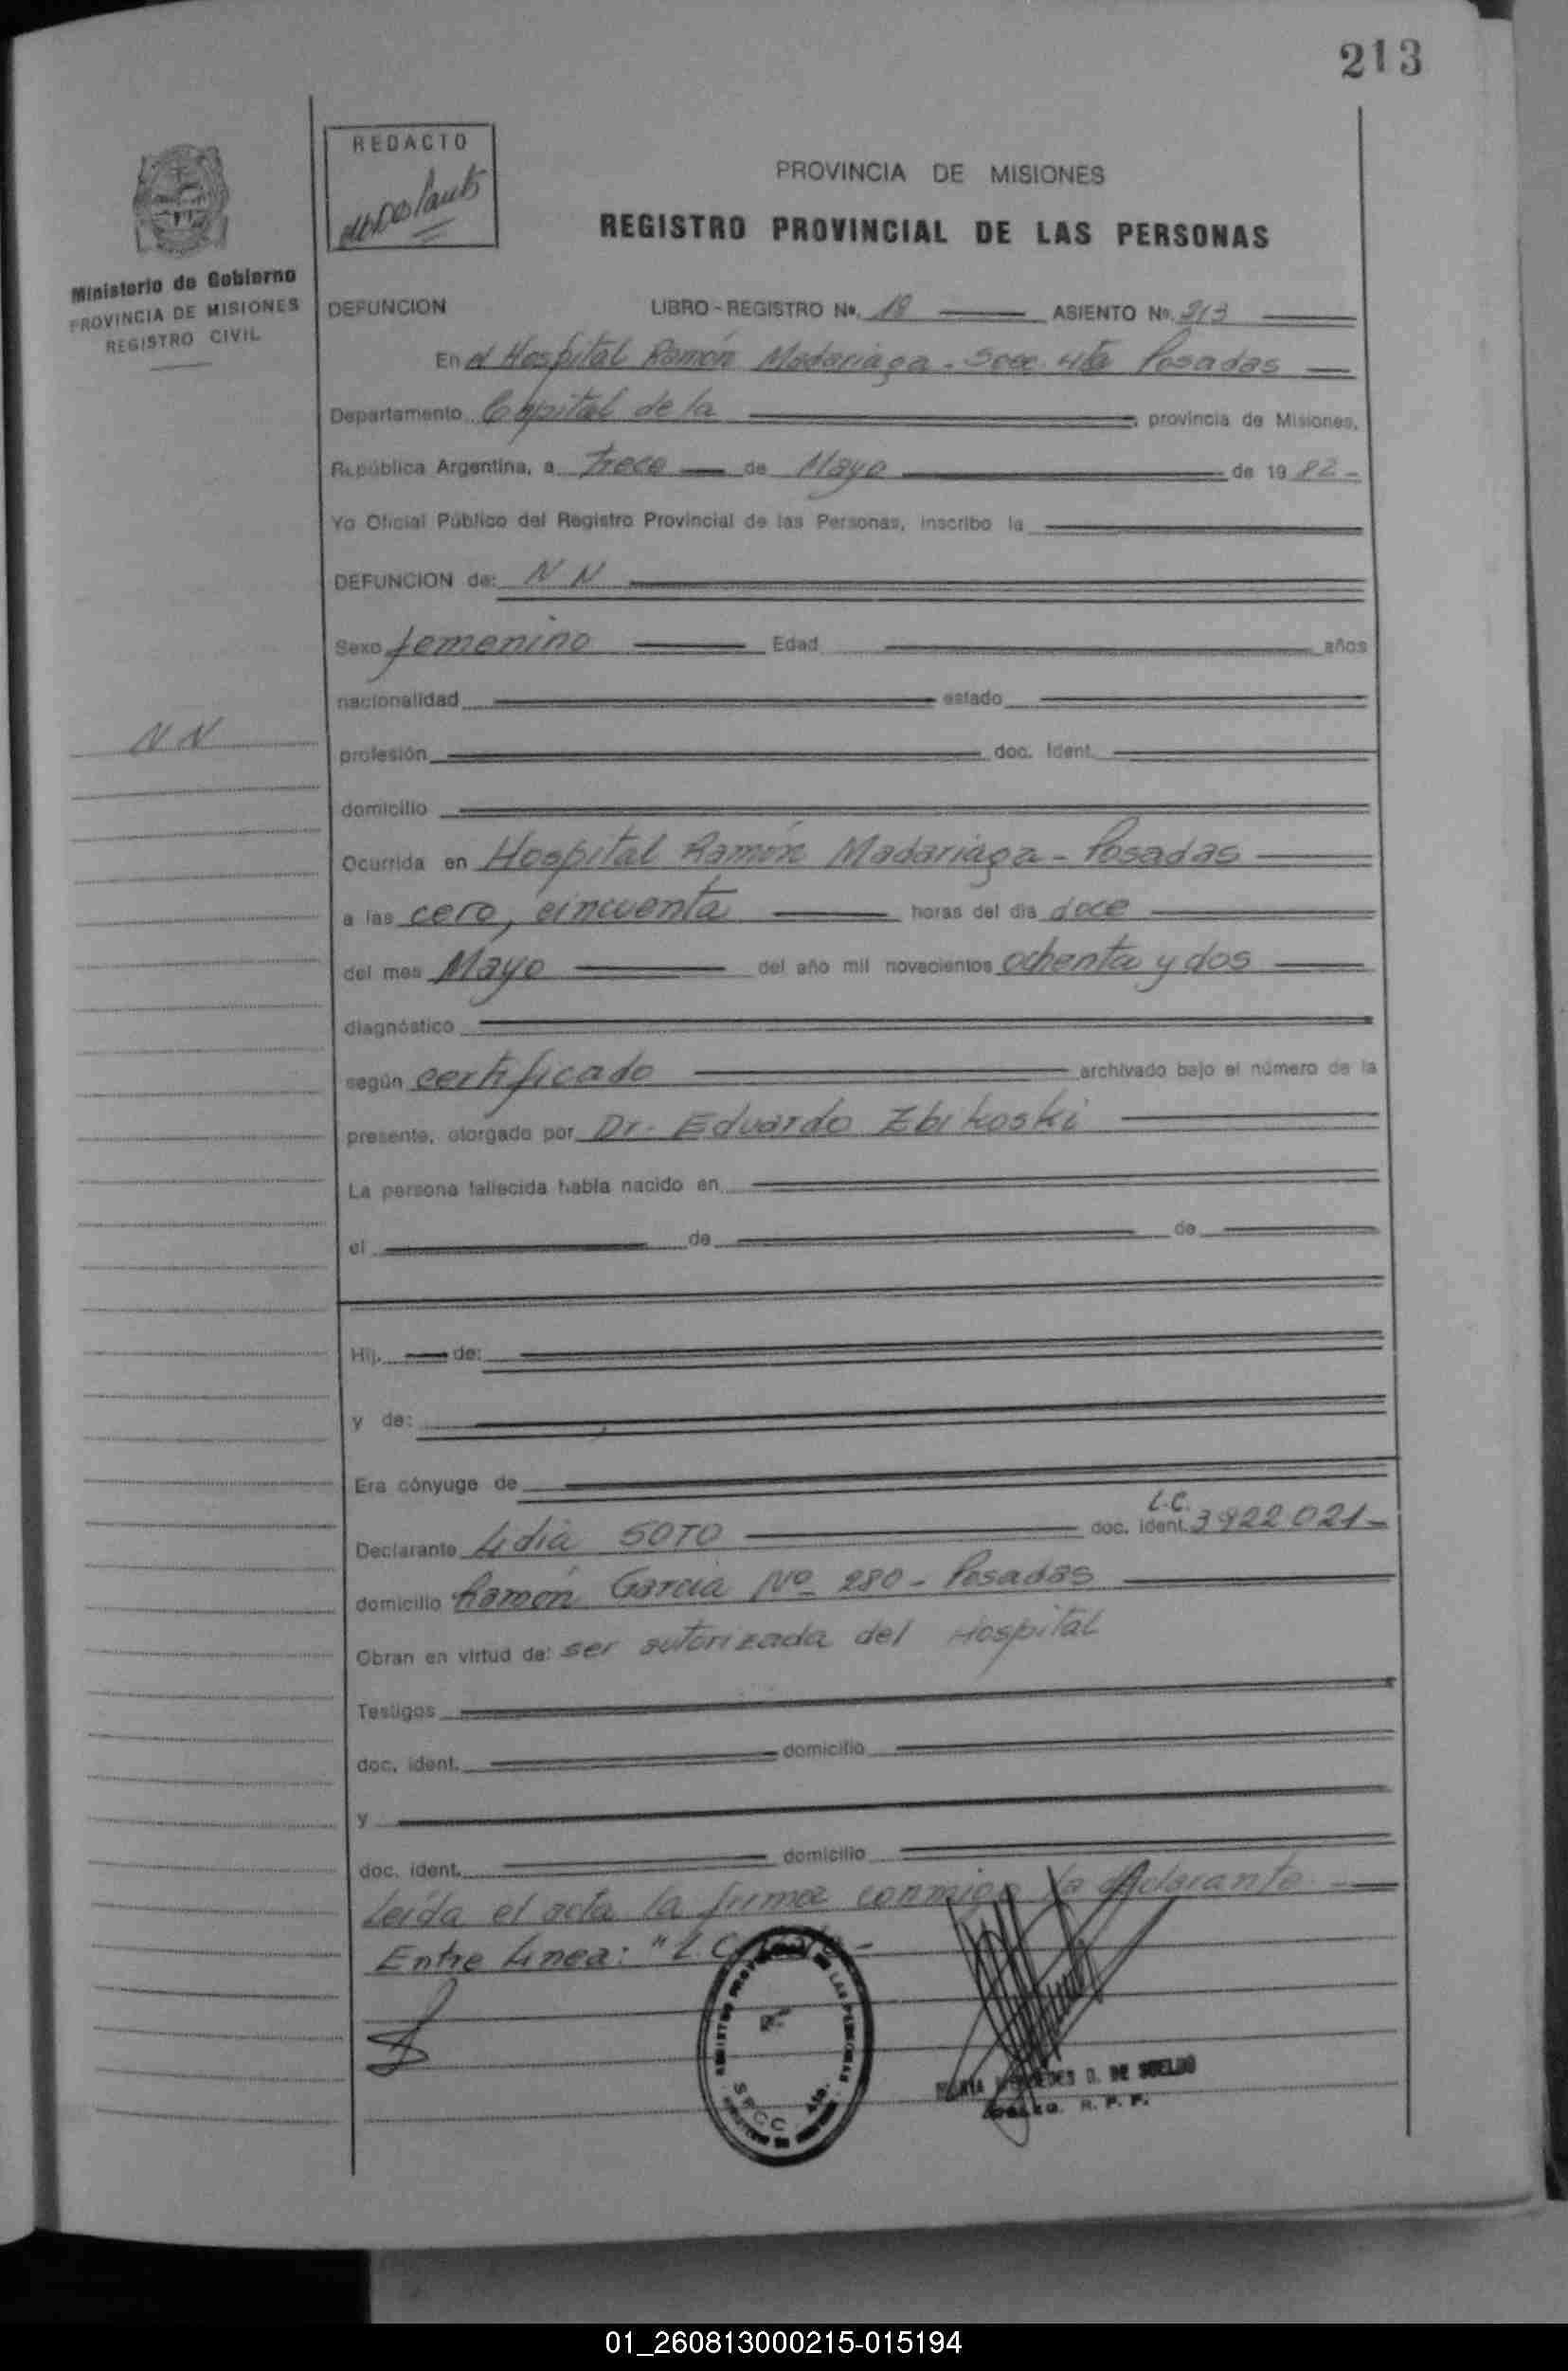 213
REDACTO
PROVINCIA DE MISIONES
REGISTRO PROVINCIAL DE LAS PERSONAS
Ministerio de Gobierno
PROVINCIA DE MISIONES
REGISTRO CIVIL
DEFUNCION LIBRO - REGISTRO No. 18 ASIENTO No. 213
En el Hospital Ramón Madariaga - Secc. 4ta Posadas
Departamento Capital de la , provincia de Misiones,
República Argentina, a trece de Mayo de 1982 -
Yo Oficial Público del Registro Provincial de las Personas, inscribo la
DEFUNCION de: N N
Sexo femenino Edad años
nacionalidad estado
N N
profesión doc. Ident.
domicilio
Ocurrida en Hospital Ramón Madariaga - Posadas
a las cero, cincuenta horas del día doce
del mes Mayo del año mil novecientos ochenta y dos
diagnóstico
según certificado archivado bajo el número de la
presente, otorgado por Dr. Eduardo Zbikoski
La persona fallecida había nacido en
el de de
Hij de:
y de:
Era cónyuge de
L.C.
Declarante Lidia SOTO doc. Ident. 3922021-
domicilio Ramón Garcia No 280 - Posadas
Obran en virtud de: ser autorizada del Hospital
Testigos
doc. ident. domicilio
y
doc. ident. domicilio
Leída el acta la firma conmigo la declarante. -
Entre Linea: "L.C.
DE SUELDO
R. P. P.
01_260813000215-015194